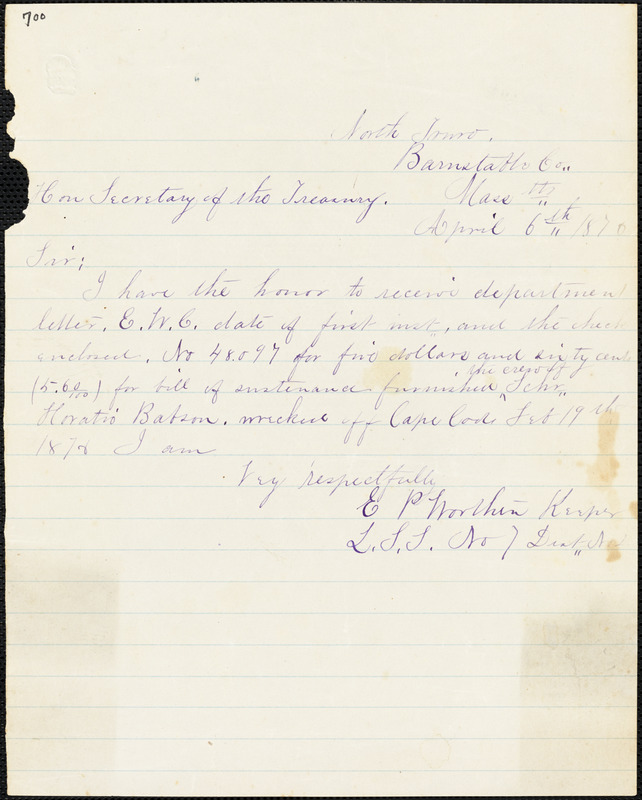 700
North Truro,
Barnstable Co.,
Hon Secretary of the Treasury. Mass
April 6th 1878
Sir;
I have the honor to receive department
letter, E.W.C. date of first inst., and the check
enclosed, No 48.097 for five dollars and sixty cents
(5.60/100) for bill of sustenance furnished the crew of Schr,,
Horatio Babson. wrecked off Cape Code Feb 19th
1878 I am
Vey respectfully
E P Worthen Keeper
L.S.S. No 7 Dist,, No